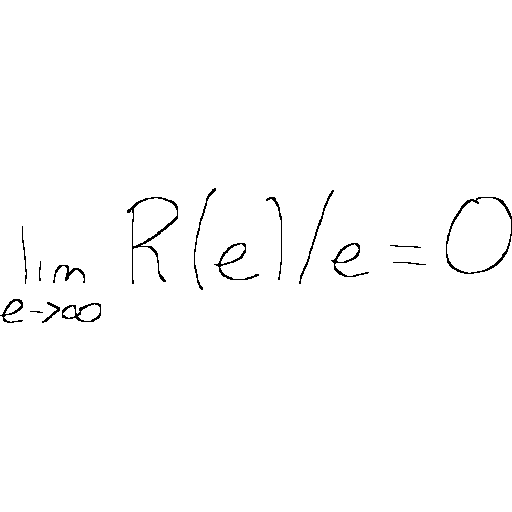 lim_{e→∞} R(e)/e = 0